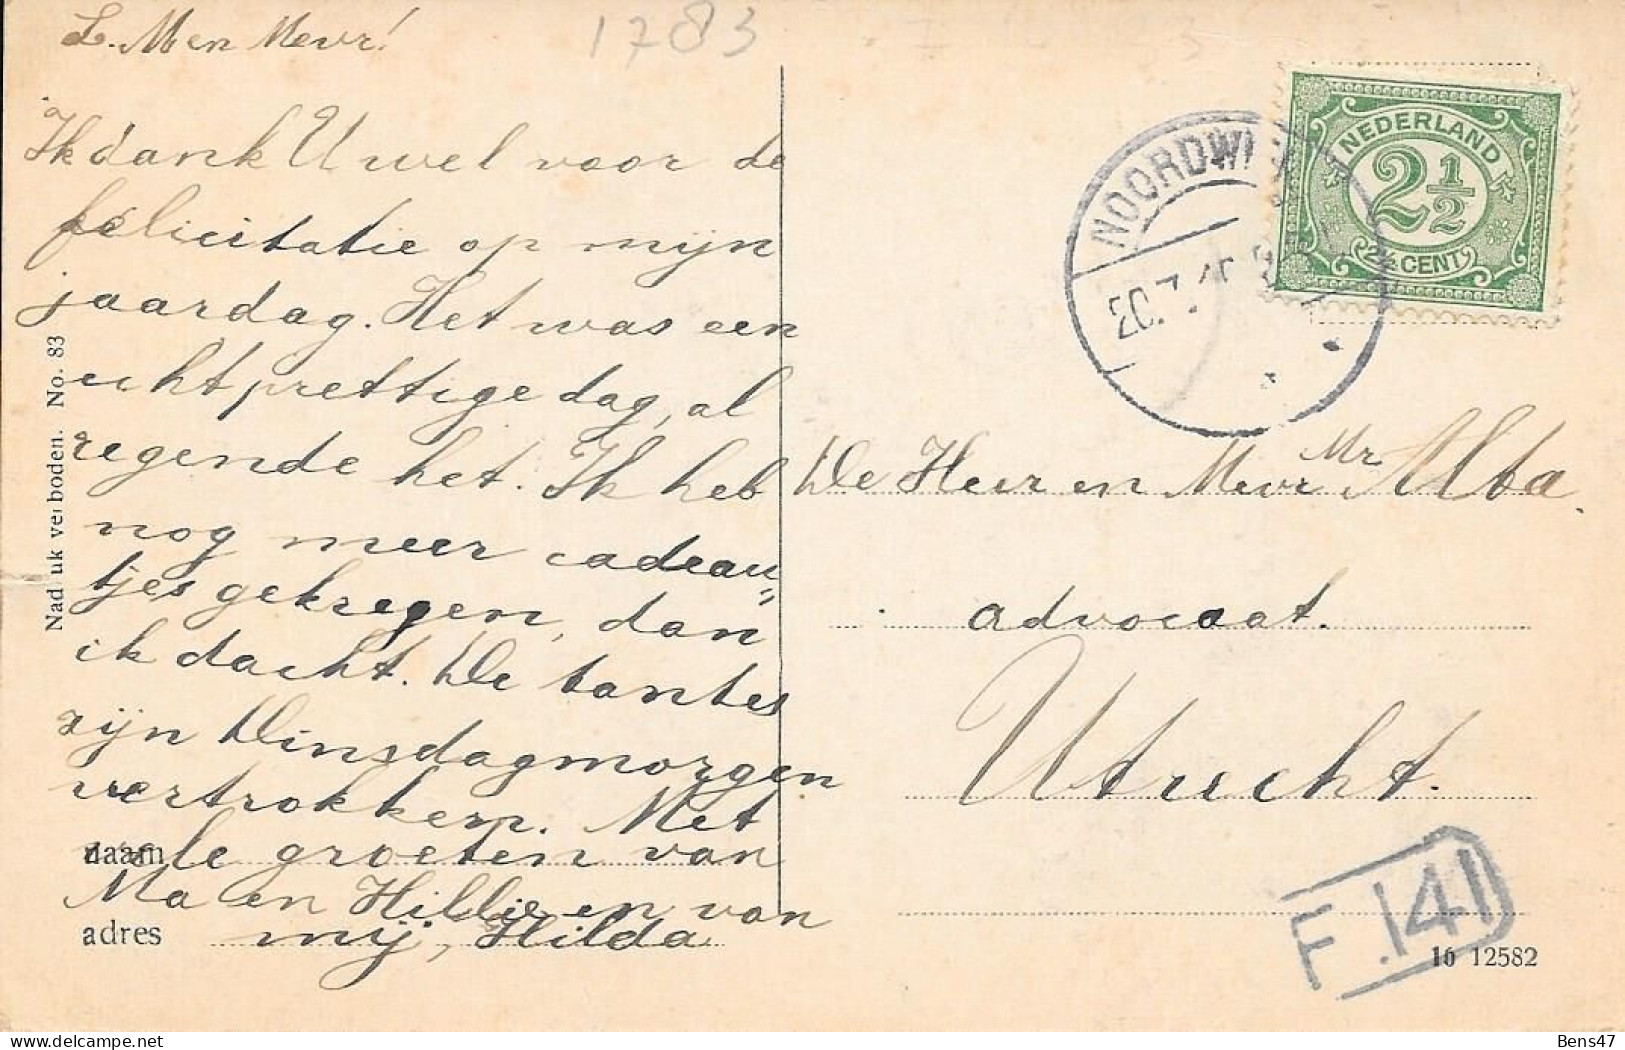 1783
L. M en Mevr!
Ik dank U wel voor de
felicitatie op mijn
jaardag. Het was een
echt prettige dag, al
regende het. Ik heb
nog meer cadeau„
tjes gekregen, dan
ik dacht. De tantes
zijn Dinsdagmorgen
vertrokken. Met
vele groeten van
Ma en Hillie en van
mij, Hilda
naam
adres
Nadruk verboden. No. 83
NEDERLAND
2 1/2
2½ CENT
NOORDWIJ
20.7.
De Heer en Mevr Mr Alba
advocaat.
Utrecht.
F. 141
16 12582
Bens47